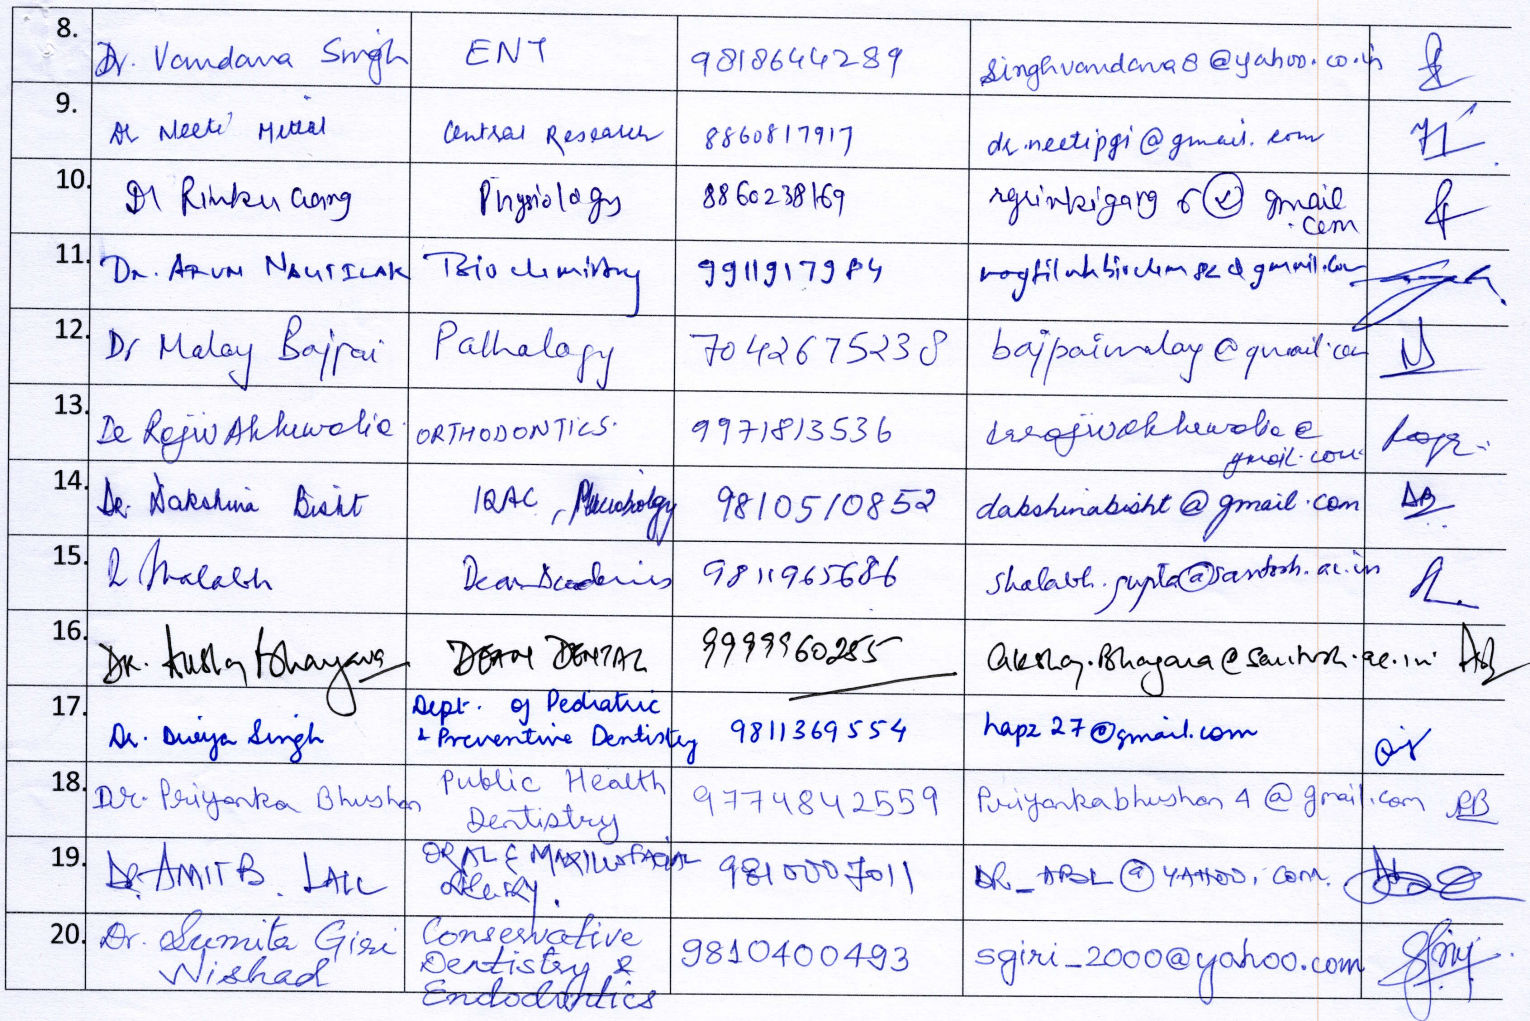 8. Dr. Vandana Singh ENT 9818644289 singhvandana8@yahoo.co.in
9. Dr Neeti Mittal Central Research 8860817917 dr.neetipgi@gmail.com
10. Dr Rinku Garg Physiology 8860238169 rgrinkigarg6@gmail
.com
11. Dr. ARUN NAUTILAK Biochemistry 9911917984
12. Dr Malay Bajpai Pathology 7042675238 bajpaimalay@gmail.com
13. Dr Rajiv Ahluwalia ORTHODONTICS. 9971813536 drrajivahluwalia@
gmail.com
14. Dr. Dakshina Bisht IQAC, Microbiology 9810510852 dakshinabisht@gmail.com
15. Shalabh Dean Academics 9811965686 shalabh.gupta@santosh.ac.in
16. DR. Akshay Bhargava DEAN DENTAL 9999960285 akshay.Bhargava@santosh.ac.in AB
Dept. of Pediatric
17. Dr. Divya Singh & Preventive Dentistry 9811369554 hapz27@gmail.com
18. Dr. Priyanka Bhushan Public Health 9774842559 Priyankabhushan4@gmail.com PB
Dentistry
19. DR AMIT B. LALL ORAL & MAXILLOFACIAL 9810007011 DR_ABL@YAHOO.COM.
20. Dr. Sumita Giri Conservative 9810400493 sgiri_2000@yahoo.com
Nishad Dentistry &
Endodontics